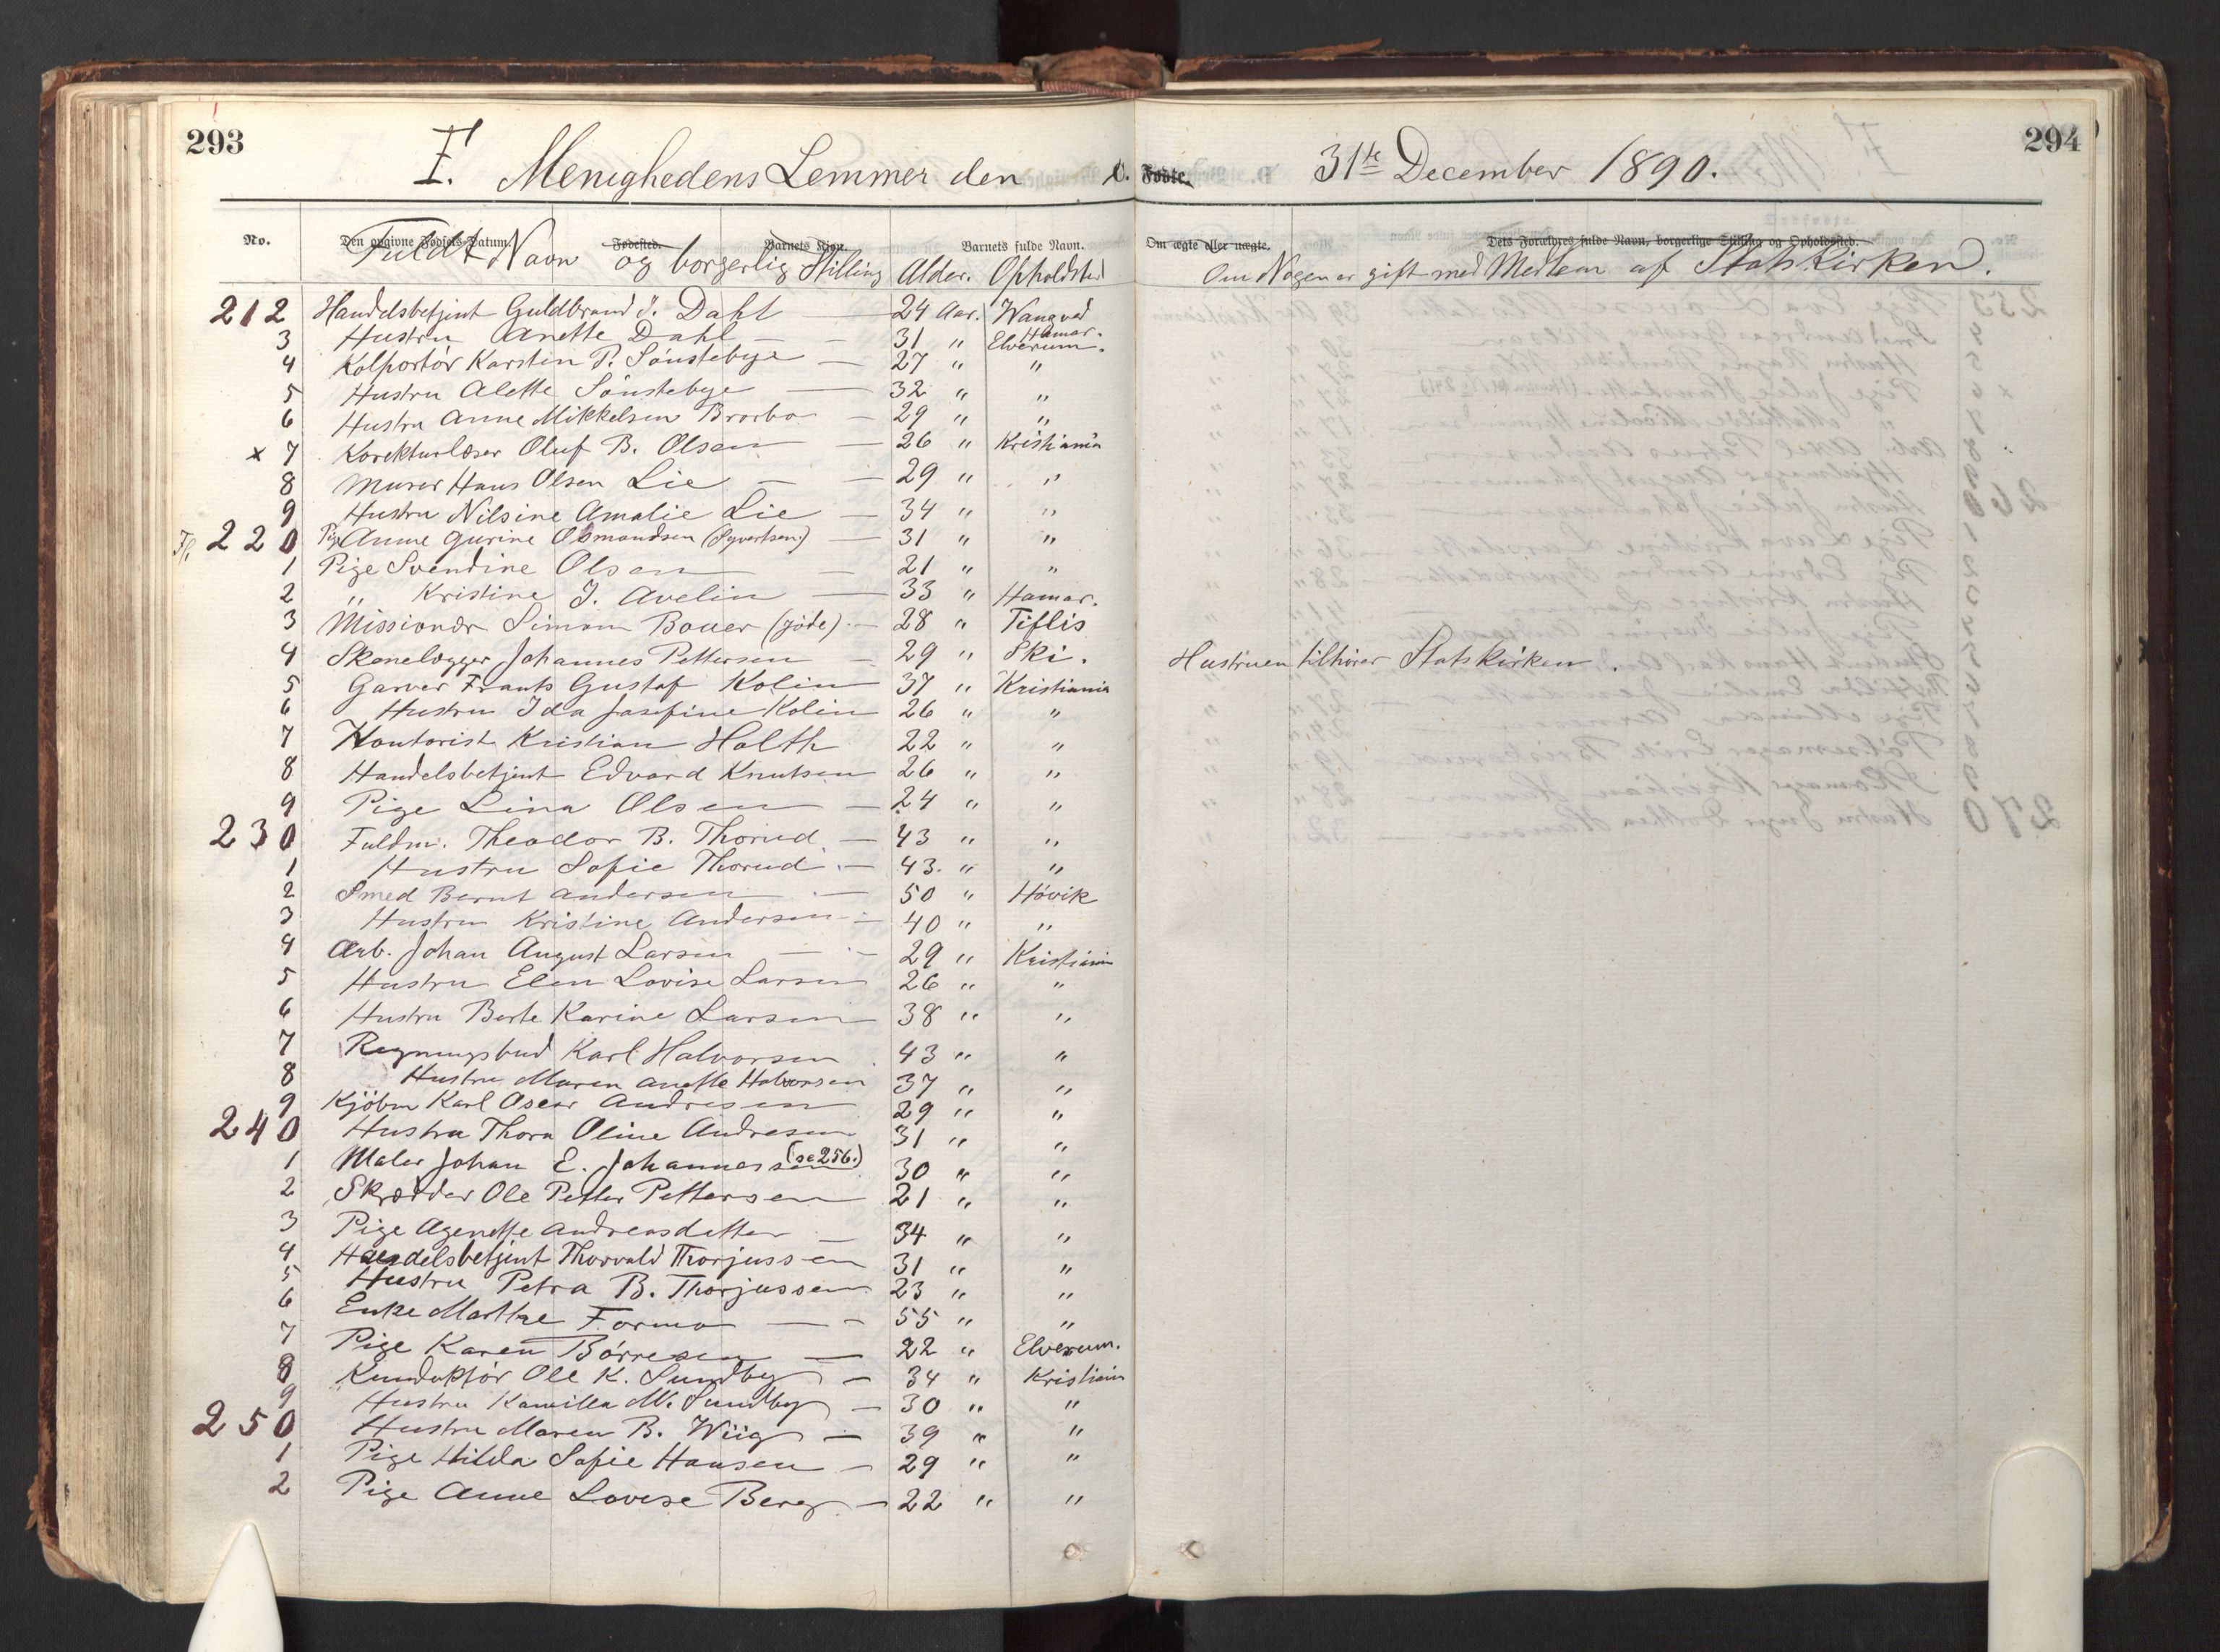 293
294
F. Menighedens Lemmer den
C. Fødte.
31te December 1890.
No.
Den opgivne Fødsels-Datum.
Fødested.
Barnets Kjøn.
Barnets fulde Navn.
Om ægte eller uægte.
Dets Forældres fulde Navn, borgerlige Stilling og Opholdssted.
Fuldt Navn og borgerlig Stilling Alder. Opholdsted
Om Nogen er gift med Medlem af Statskirken.
212 Handelsbetjent Guldbrand J. Dahl — 24 Aar. Wang ved Hamar.
3 Hustru Anette Dahl — 31 " Elverum.
4 Kolportør Karsten P. Sønstebye — 27 " "
5 Hustru Alette Sønstebye — 32 " "
6 Hustru Anne Mikkelsen Brorbo — 29 " "
x 7 Korekturlæser Oluf B. Olsen — 26 " Kristiania
8 Murer Hans Olsen Lie — 29 " "
9 Hustru Nilsine Amalie Lie — 34 " "
220 Pige Anne Gurine Osmundsen (Syvertsen) — 31 " "
1 Pige Svendine Olsen — 21 " "
2 " Kristine J. Avelin — 33 " Hamar.
3 Missionær Simon Bauer (jøde) — 28 " Tiflis
4 Skenelægger Johannes Pettersen — 29 " Ski. Hustruen tilhører Statskirken.
5 Garver Frants Gustaf Kolin 37 " Kristiania
6 Hustru Ida Josefine Kolin 26 " "
7 Kontorist Kristian Holth 22 " "
8 Handelsbetjent Edvard Knutsen 26 " "
9 Pige Lina Olsen — 24 " "
230 Fuldm. Theodor B. Thorud — 43 " "
1 Hustru Sofie Thorud — 43 " "
2 Smed Bernt Andersen — 50 " Høvik
3 Hustru Kristine Andersen — 40 " "
4 Arb. Johan August Larsen — 29 " Kristiania
5 Hustru Elen Lovise Larsen 26 " "
6 Hustru Berte Karine Larsen 38 " "
7 Regningsbud Karl Halvorsen 43 " "
8 Hustru Maren Anette Halvorsen 37 " "
9 Kjøbm Karl Oscar Andresen 29 " "
240 Hustru Thora Oline Andresen 31 " "
1 Maler Johan E. Johannessen (se 256.) 30 " "
2 Skrædder Ole Petter Pettersen 21 " "
3 Pige Agenette Andreasdatter — 34 " "
4 Handelsbetjent Thorvald Thorjussen 31 " "
5 Hustru Petra B. Thorjussen 23 " "
6 Enke Marthe Formo — 55 " "
7 Pige Karen Børresen — 22 " Elverum.
8 Kunduktør Ole K. Sundby — 34 " Kristiania
9 Hustru Kamilla M. Sundby — 30 " "
250 Hustru Maren B. Wiig — 39 " "
1 Pige Hilda Sofie Hansen — 29 " "
2 Pige Anne Lovise Berg — 22 " "